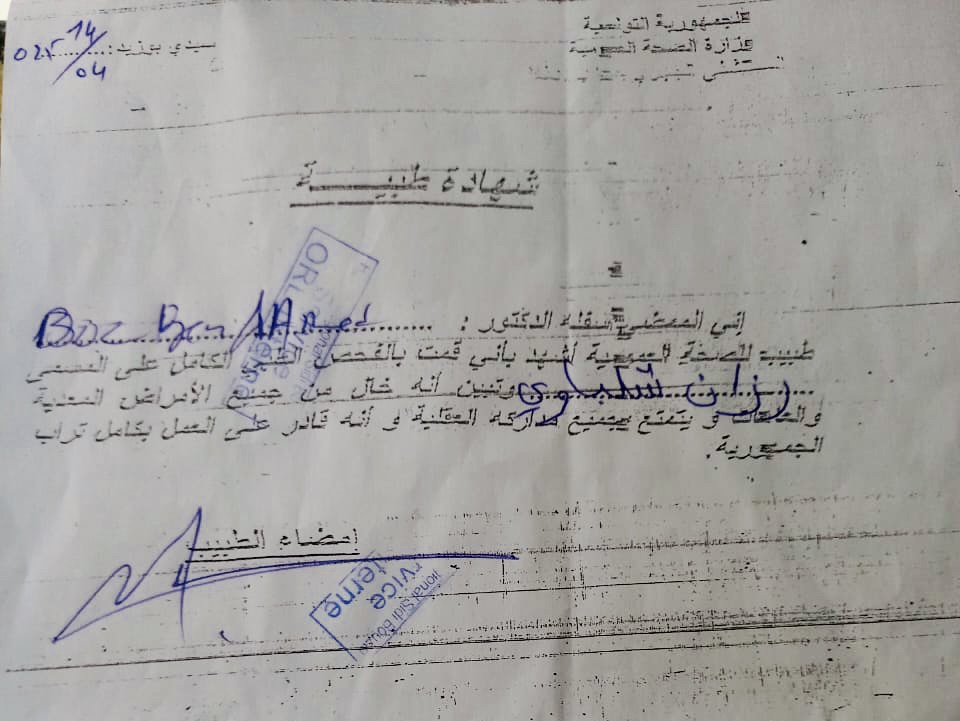 الجمهورية التونسية
وزارة الصحة العمومية
سيدي بوزيد: 14/04
شهادة طبيـــــة
إني الممضي أسفله الدكتور : Ben Ahmed
طبيب للصحة العمومية أشهد بأني قمت بالفحص الطبي الكامل على المسمى
وتبين أنه خال من جميع الأمراض المعدية
والعاهات و يتمتع بجميع مداركه العقلية و أنه قادر على العمل بكامل تراب
الجمهورية.
ORL
امضاء الطبيب
rvice
terne
ional Sidi Bouzi